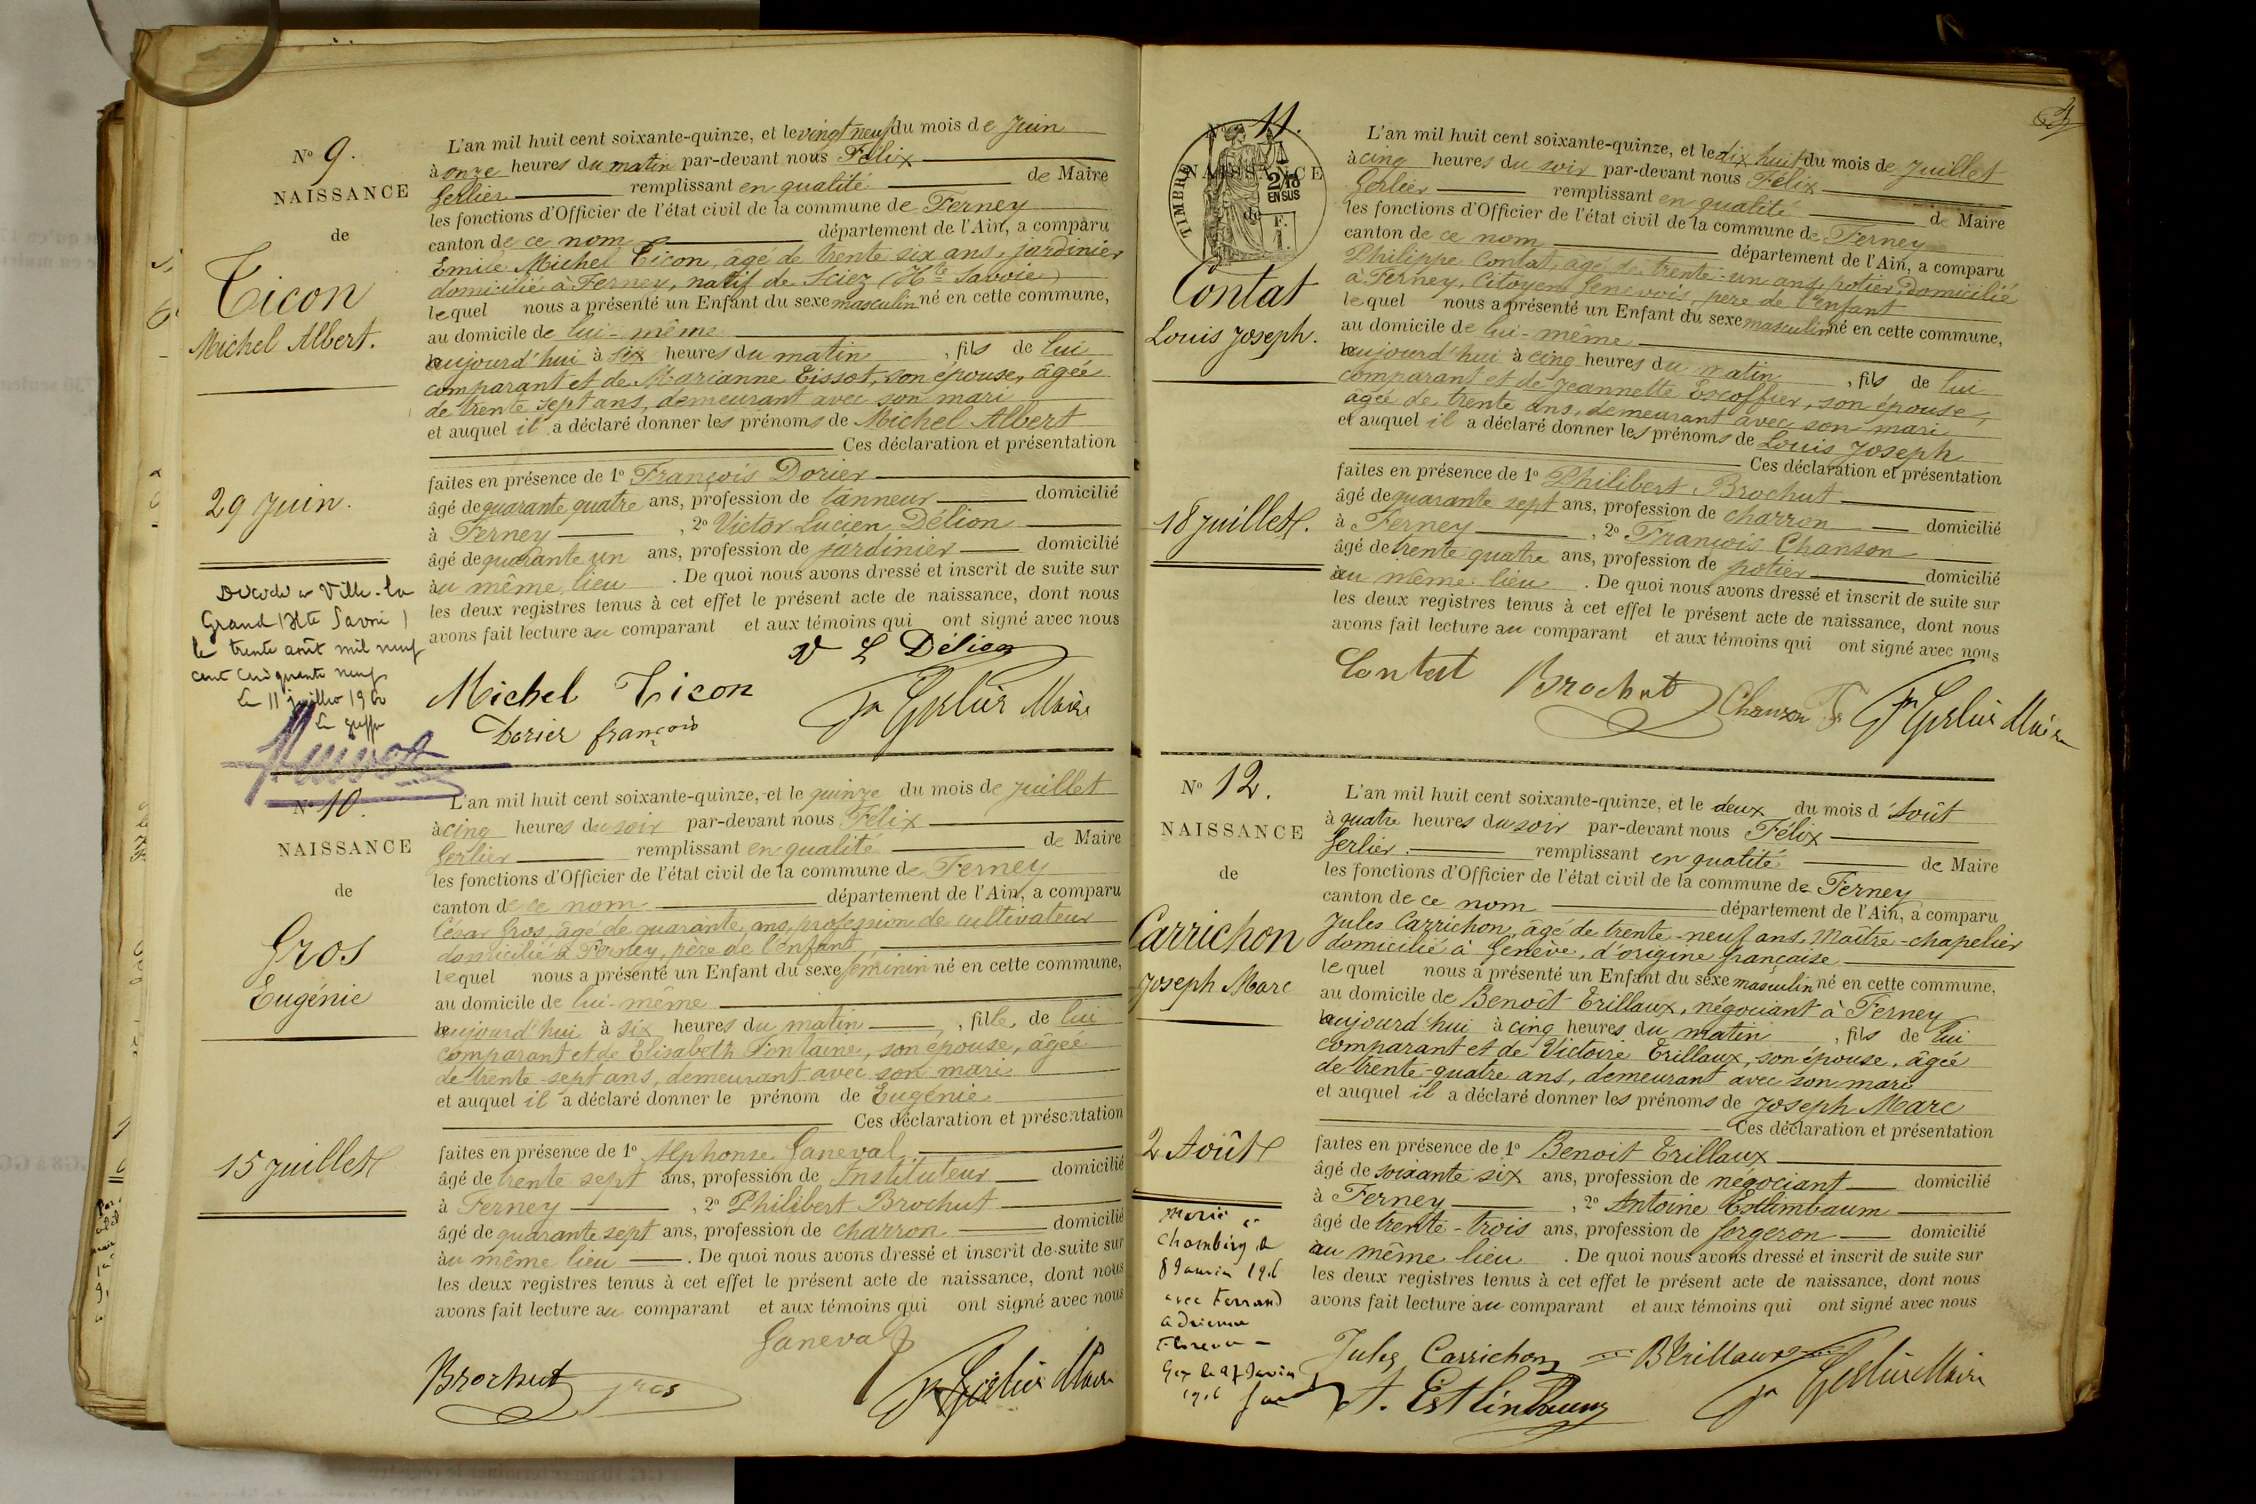 N° 9.
NAISSANCE
de
Ticon
Michel Albert.
29 Juin.
Décédé à Ville-la
Grand (Hte Savoie)
le trente août mil neuf
cent cinquante neuf
Le 11 juillet 1960
L'an mil huit cent soixante-quinze, et le vingt neuf du mois de Juin
à onze heures du matin par-devant nous Félix
Gerlier remplissant en qualité de Maire
les fonctions d'Officier de l'état civil de la commune de Ferney
canton de ce nom département de l'Ain, a comparu
Emile Michel Ticon, âgé de trente six ans, jardinier
domicilié à Ferney, natif de Sciez (Hte Savoie)
lequel nous a présenté un Enfant du sexe masculin né en cette commune,
au domicile de lui-même
aujourd'hui à six heures du matin, fils de lui
comparant et de Marianne Tissot, son épouse, âgée
de trente sept ans, demeurant avec son mari
et auquel il a déclaré donner les prénoms de Michel Albert
Ces déclaration et présentation
faites en présence de 1° François Dorier
âgé de quarante quatre ans, profession de tanneur domicilié
à Ferney, 2° Victor Lucien Délion
âgé de quarante un ans, profession de jardinier domicilié
au même lieu. De quoi nous avons dressé et inscrit de suite sur
les deux registres tenus à cet effet le présent acte de naissance, dont nous
avons fait lecture au comparant et aux témoins qui ont signé avec nous
V L Délion
Michel Ticon
Dorier françois
Fx Gerlier Maire
N° 10.
NAISSANCE
de
Gros
Eugénie
15 Juillet
L'an mil huit cent soixante-quinze, et le quinze du mois de Juillet
à cinq heures du soir par-devant nous Félix
Gerlier remplissant en qualité de Maire
les fonctions d'Officier de l'état civil de la commune de Ferney
canton de ce nom département de l'Ain, a comparu
César Gros, âgé de quarante ans, profession de cultivateur
domicilié à Ferney, père de l'enfant
lequel nous a présenté un Enfant du sexe féminin né en cette commune,
au domicile de lui-même
aujourd'hui à six heures du matin, fille, de lui
comparant et de Elisabeth Fontaine, son épouse, âgée
de trente-sept ans, demeurant avec son mari
et auquel il a déclaré donner le prénom de Eugénie
Ces déclaration et présentation
faites en présence de 1° Alphonse Ganeval
âgé de trente sept ans, profession de Instituteur domicilié
à Ferney, 2° Philibert Brochut
âgé de quarante sept ans, profession de charron domicilié
au même lieu. De quoi nous avons dressé et inscrit de suite sur
les deux registres tenus à cet effet le présent acte de naissance, dont nous
avons fait lecture au comparant et aux témoins qui ont signé avec nous
Ganeval
Brochut gros
Fx Gerlier Maire
N° 11.
NAISSANCE
de
TIMBRE
2/10
EN SUS
F.
1.
Contat
Louis Joseph.
18 Juillet.
L'an mil huit cent soixante-quinze, et le dix huit du mois de Juillet
à cinq heures du soir par-devant nous Félix
Gerlier remplissant en qualité de Maire
les fonctions d'Officier de l'état civil de la commune de Ferney
canton de ce nom département de l'Ain, a comparu
Philippe Contat, âgé de trente-un ans, potier, domicilié
à Ferney, Citoyen Genevois, père de l'Enfant
lequel nous a présenté un Enfant du sexe masculin né en cette commune,
au domicile de lui-même
aujourd'hui à cinq heures du matin, fils de lui
comparant et de Jeannette Escoffier, son épouse,
âgée de trente ans, demeurant avec son mari
et auquel il a déclaré donner les prénoms de Louis Joseph
Ces déclaration et présentation
faites en présence de 1° Philibert Brochut
âgé de quarante sept ans, profession de charron domicilié
à Ferney, 2° François Chanson
âgé de trente quatre ans, profession de potier domicilié
au même lieu. De quoi nous avons dressé et inscrit de suite sur
les deux registres tenus à cet effet le présent acte de naissance, dont nous
avons fait lecture au comparant et aux témoins qui ont signé avec nous
Contat Brochut Chanson Fs Fx Gerlier Maire
N° 12.
NAISSANCE
de
Carrichon
Joseph Marc
2 Août
Marié à
Chambéry le
8 Janvier 1916
avec Ferrand
Adrienne
Gex le 27 Janvier
1916
L'an mil huit cent soixante-quinze, et le deux du mois d'Août
à quatre heures du soir par-devant nous Félix
Gerlier remplissant en qualité de Maire
les fonctions d'Officier de l'état civil de la commune de Ferney
canton de ce nom département de l'Ain, a comparu
Jules Carrichon, âgé de trente-neuf ans, Maître-chapelier
domicilié à Genève, d'origine française
lequel nous a présenté un Enfant du sexe masculin né en cette commune,
au domicile de Benoît Trillaux, négociant à Ferney
aujourd'hui à cinq heures du matin, fils de lui
comparant et de Victoire Trillaux, son épouse, âgée
de trente-quatre ans, demeurant avec son mari
et auquel il a déclaré donner les prénoms de Joseph Marc
Ces déclaration et présentation
faites en présence de 1° Benoit Trillaux
âgé de soixante six ans, profession de négociant domicilié
à Ferney, 2° Antoine Estlimbaum
âgé de trente-trois ans, profession de forgeron domicilié
au même lieu. De quoi nous avons dressé et inscrit de suite sur
les deux registres tenus à cet effet le présent acte de naissance, dont nous
avons fait lecture au comparant et aux témoins qui ont signé avec nous
Jules Carrichon BTrillaux
A. Estlinbaum
Fx Gerlier Maire